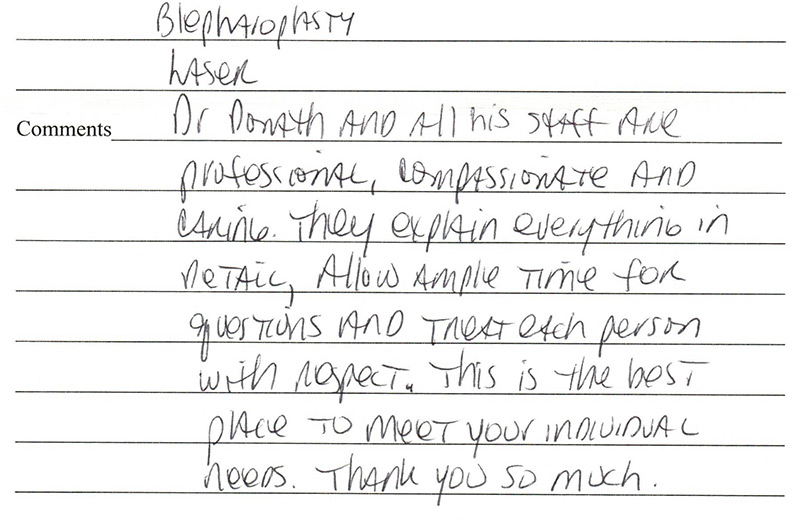 Blepharoplasty
Laser
Comments Dr Donath and all his staff are
professional, compassionate and
caring. They explain everything in
detail, Allow ample time for
questions and treat each person
with respect. This is the best
place to meet your individual
needs. Thank you so much.